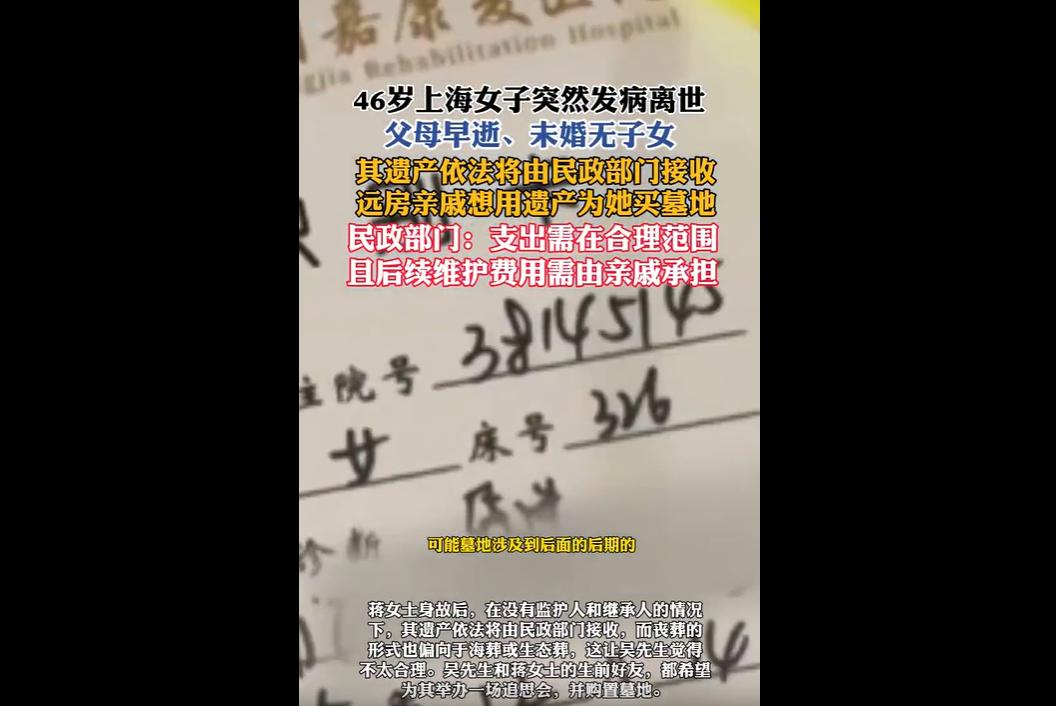 嘉康复医院
gjia Rehabilitation Hospital
46岁上海女子突然发病离世
父母早逝、未婚无子女
其遗产依法将由民政部门接收
远房亲戚想用遗产为她买墓地
民政部门：支出需在合理范围
且后续维护费用需由亲戚承担
住院号 38145145
女 床号 326
诊断
可能墓地涉及到后面的后期的
蒋女士身故后，在没有监护人和继承人的情况
下，其遗产依法将由民政部门接收，而丧葬的
形式也偏向于海葬或生态葬，这让吴先生觉得
不太合理。吴先生和蒋女士的生前好友，都希望
为其举办一场追思会，并购置墓地。